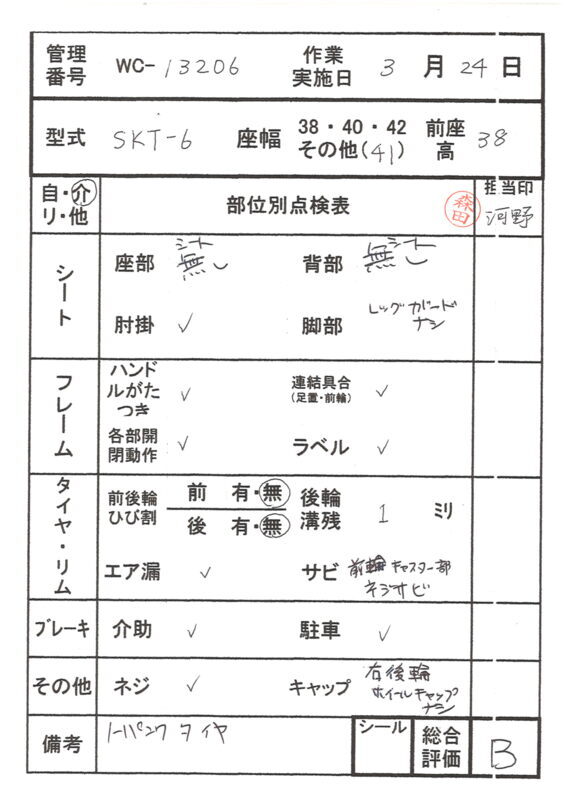 管理番号 WC-13206 作業実施日 3月24日
型式 SKT-6 座幅 38・40・42 その他(41) 前座高 38
自・介 リ・他 部位別点検表 森田 担当印 河野
シート 座部 シート無し 背部 シート無し
肘掛 ✓ 脚部 レッグガードナシ
フレーム ハンドルがたつき ✓ 連結具合(足置・前輪) ✓
各部開閉動作 ✓ ラベル ✓
タイヤ・リム 前後輪ひび割 前 有・無 後輪溝残 1 ミリ
後 有・無
エア漏 ✓ サビ 前輪キャスター部ネジサビ
ブレーキ 介助 ✓ 駐車 ✓
その他 ネジ ✓ キャップ 右後輪ホイールキャップナシ
備考 ノーパンクタイヤ シール 総合評価 B